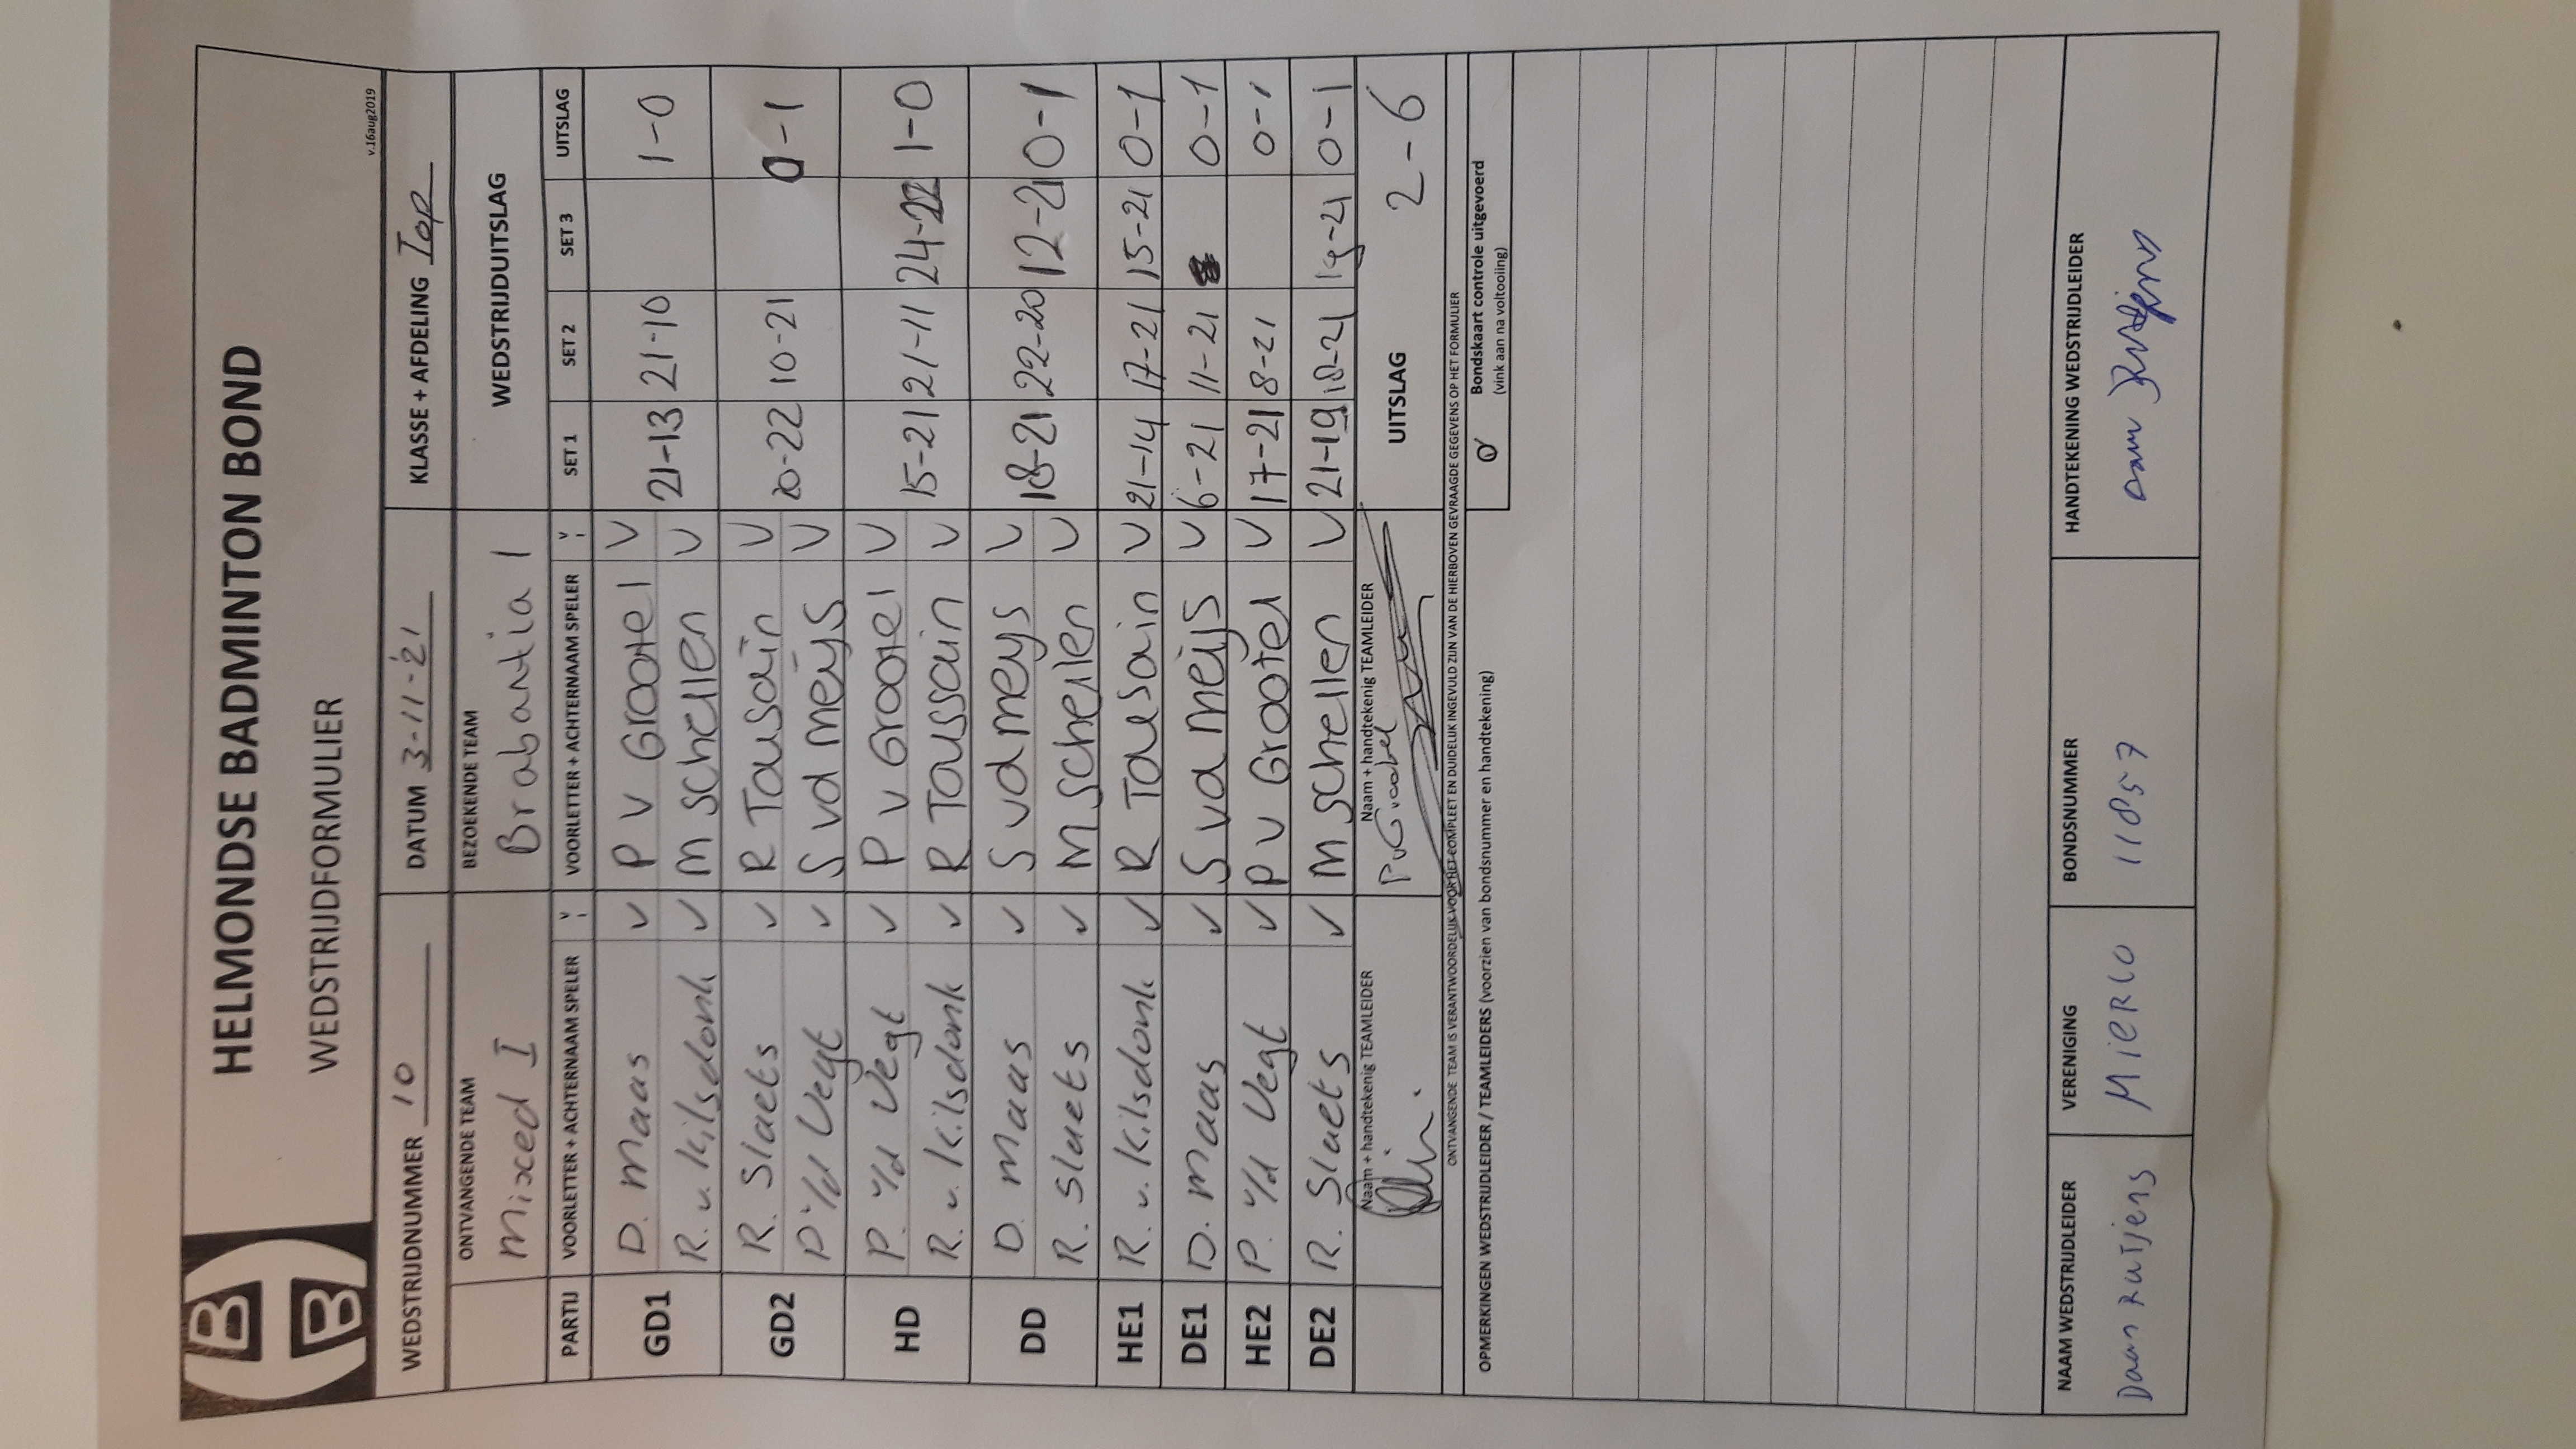 HELMONDSE BADMINTON BOND
WEDSTRIJDFORMULIER
v.16aug2019
WEDSTRIJDNUMMER 10 DATUM 3-11-'21 KLASSE + AFDELING Top
ONTVANGENDE TEAM BEZOEKENDE TEAM WEDSTRIJDUITSLAG
Mixed I Brabantia 1
PARTIJ VOORLETTER + ACHTERNAAM SPELER V VOORLETTER + ACHTERNAAM SPELER V SET 1 SET 2 SET 3 UITSLAG
GD1 D. Maas V P V Grootel V 21-13 21-10 1-0
R. v. Kilsdonk V M Schellen V
GD2 R. Slaets V R Tousain V 20-22 10-21 0-1
P v/d Vegt V S vd Meijs V
HD P. v/d Vegt V P v Grootel V 15-21 21-11 24-22 1-0
R. v. Kilsdonk V R Toussain V
DD D. Maas V S vd Meys V 18-21 22-20 12-21 0-1
R. Slaets V M Schellen V
HE1 R. v. Kilsdonk V R Tousain V 21-14 17-21 15-21 0-1
DE1 D. Maas V S vd Meijs V 6-21 11-21 0-1
HE2 P. v/d Vegt V P v Grootel V 17-21 8-21 0-1
DE2 R. Slaets V M Schellen V 21-19 18-21 19-21 0-1
Naam + handtekenig TEAMLEIDER Naam + handtekenig TEAMLEIDER UITSLAG 2-6
PvGrootel
ONTVANGENDE TEAM IS VERANTWOORDELIJK VOOR HET COMPLEET EN DUIDELIJK INGEVULD ZIJN VAN DE HIERBOVEN GEVRAAGDE GEGEVENS OP HET FORMULIER
OPMERKINGEN WEDSTRIJDLEIDER / TEAMLEIDERS (voorzien van bondsnummer en handtekening)
Bondskaart controle uitgevoerd
(vink aan na voltooiing)
NAAM WEDSTRIJDLEIDER VERENIGING BONDSNUMMER HANDTEKENING WEDSTRIJDLEIDER
Daan Rutjens MIERLO 11857 Daan Rutjens